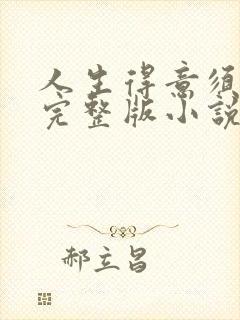 人生得意须
完整版小説
郝立昌